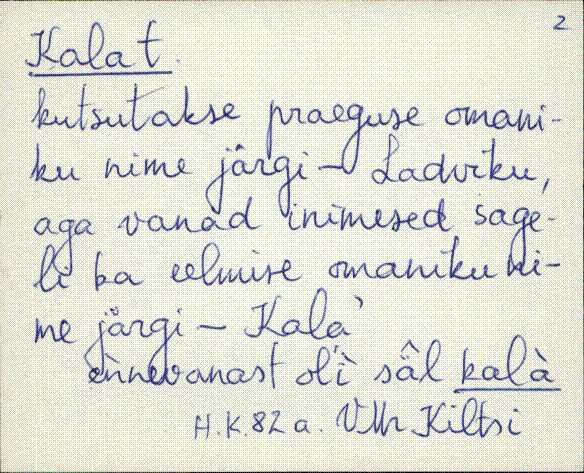 2
Kala t.
kutsutakse praeguse omani-
ku nime järgi — Ladviku,
aga vanad inimesed sage-
li ka eelmise omaniku ni-
me järgi — Kalà
ennevanast ol'ì sâl kalà
H.K. 82 a. VMr Kiltsi